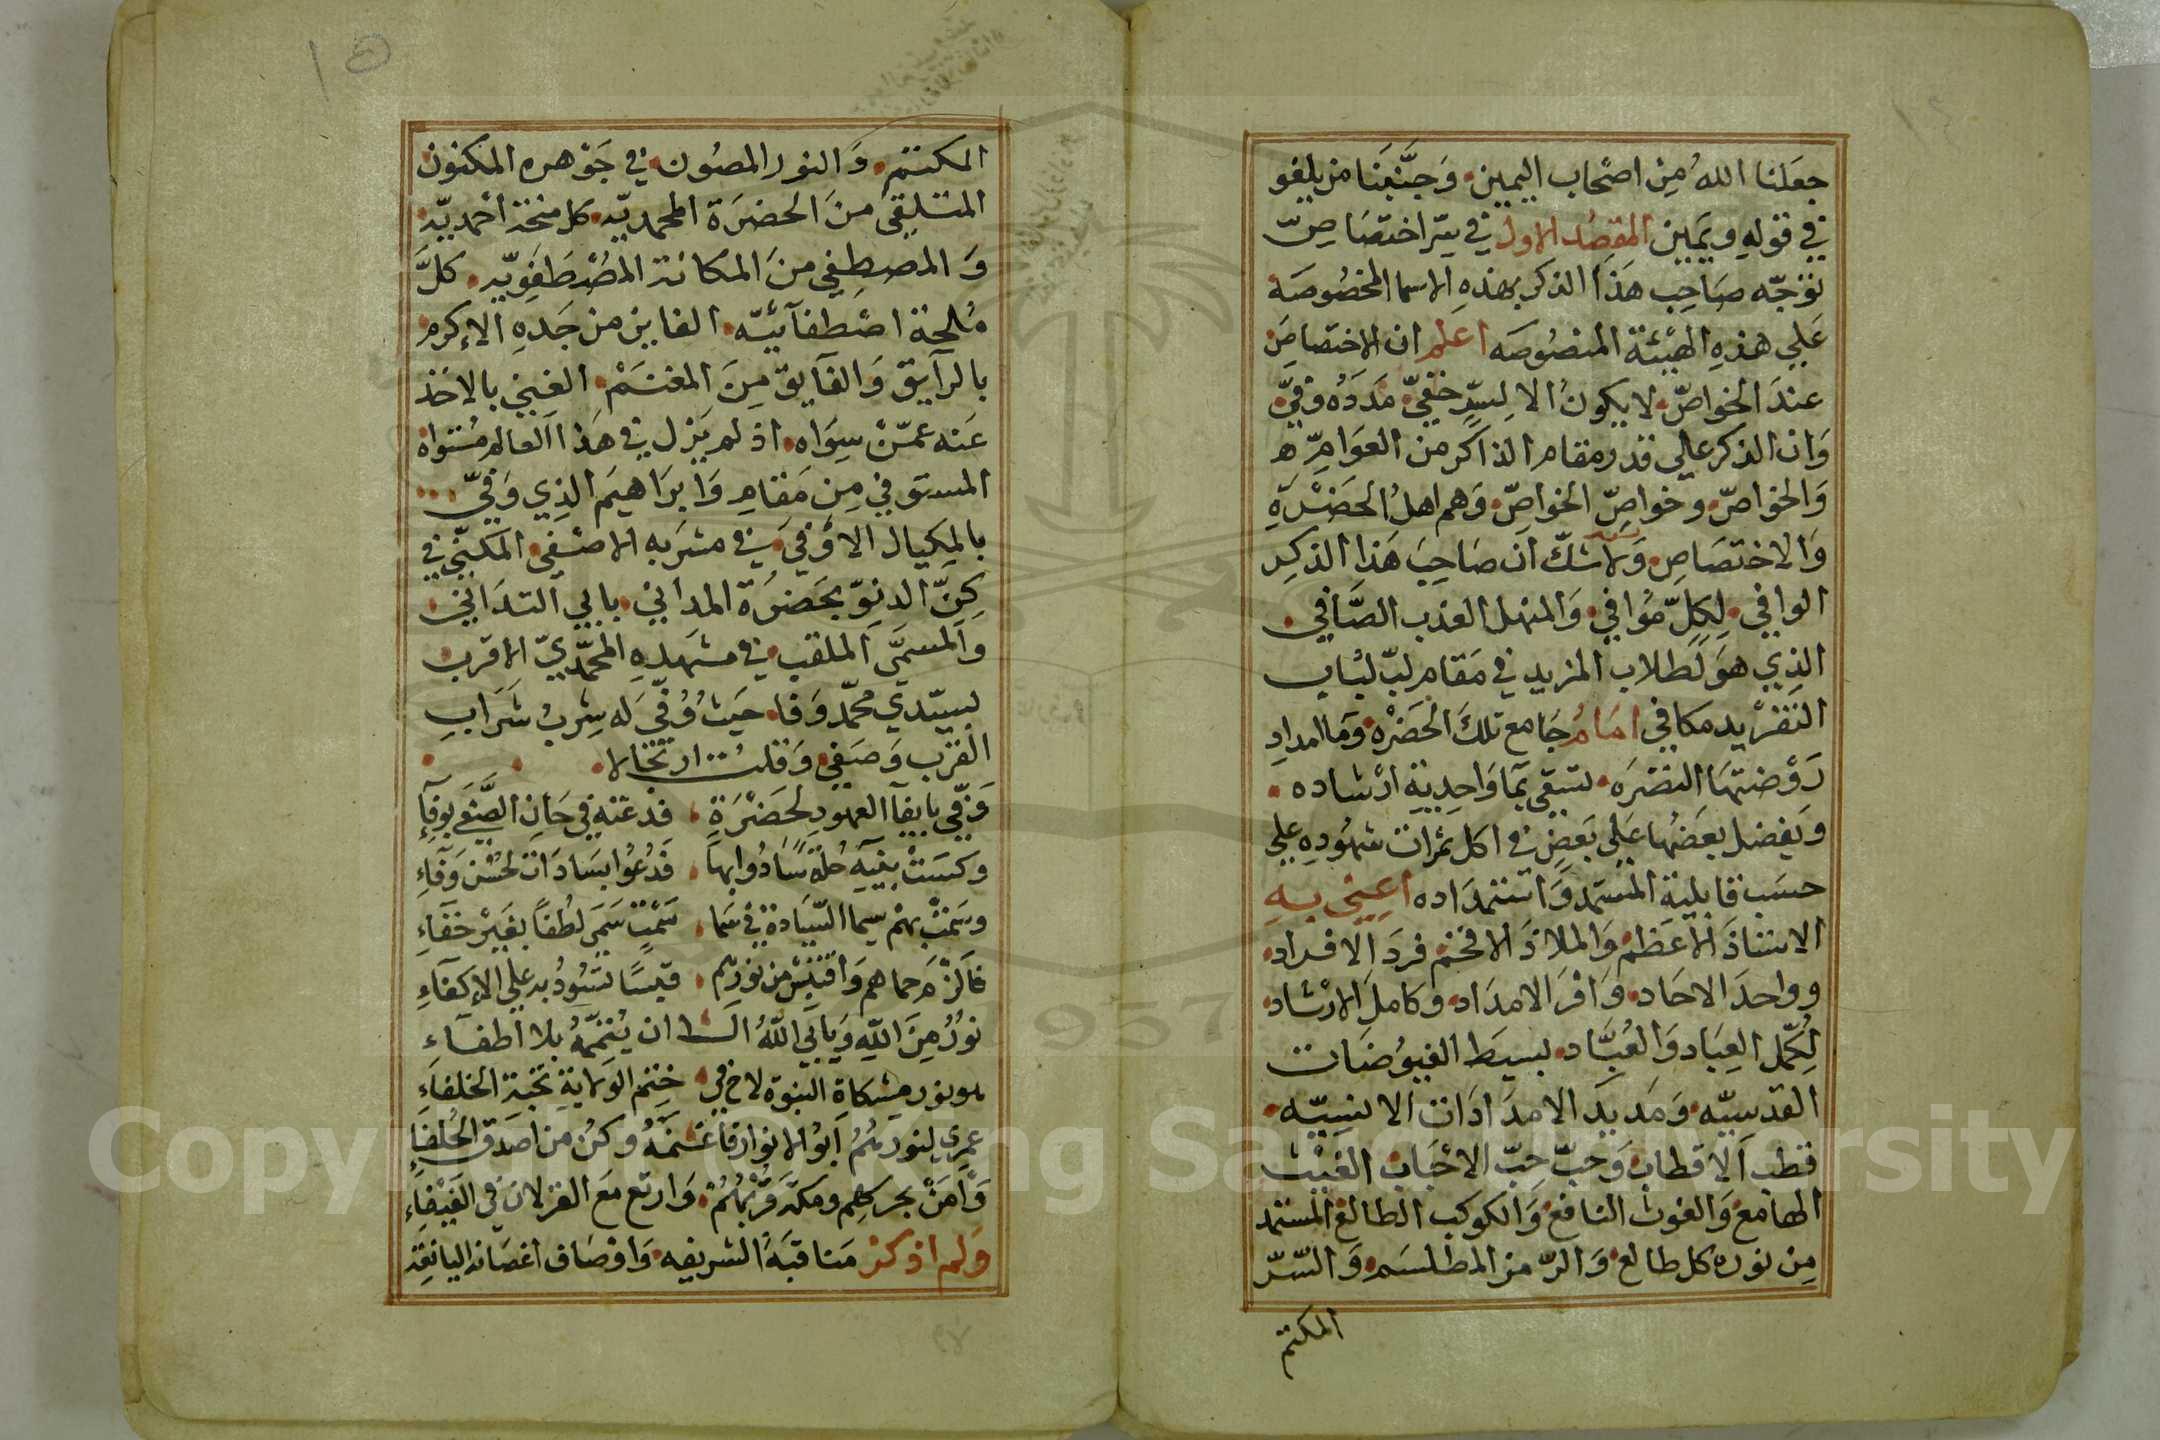 جعَلنا اللهُ مِن اصْحاب اليمين وَجنَّبَنا من يلغو
في قوله ويَمين المقصُد الاول في سِرّ اختصَاصِ
توجّه صَاحِب هَذا الذكر بهذهِ الاسما المخصُوصَة
عَلي هذهِ الهَيْئة المنصُوصَه اعلم ان الاختصاصَ
عندَ الخواصّ لا يكونُ الا لِسِرٍّ خفيّ مَدَدُه وفيّ
وَان الذكر علي قدر مقام الذاكر من العوَامِّ
وَالخواصّ وخواصّ الخواصّ وَهم اهلُ الحَضْرَةِ
وَالاختصَاصِ وَلا شكّ ان صَاحِبَ هَذا الذكِر
الوافي لِكلّ مُوَافي وَالمنهل العَذب الصَّافي
الذِي هوَ لطلاب المزيد في مَقام لبّ لبُاب
التفرْيد مكافي امَامُ جَامع تلكَ الحَضْرَة وَمَا امدادِ
رَوْضتهَا النضْرَه تسقي بَمَا وَاحِديةِ ارْشاده
وَيفضل بعضُها عَلي بَعضٍ في اكل ثمرات شهُودِهِ علي
حسَب قابليةِ المسْتمد وَاسْتمدَاده اعِني بِهِ
الاستاذَ الاعظم وَالملاذ الافخم فردَ الافراد
وواحدَ الاحَاد وَافرَ الامدَاد وكاملَ الارْشاد
لُكمّل العِبَاد وَالعُبَّاد بسيَط الفيوُضَات
القدسيّه وَمَديدَ الامدَادَات الانسِيّه
قطب الاقطاب وَحبّ حِبّ الاحْبَاب الغيْث
الهَامع وَالغوث النافع وَالكوكب الطالع المستمد
مِن نوره كل طالع وَالرّمز المطلسَم وَالسّرّ
المكتم
١٥
المكتتم وَالنور المصُون في جَوْهره المكنون
المتلقِي منَ الحضرَة المحمديّه كل منحَة احْمديّه
وَالمصطِفي منَ المكانة المصْطَفَوِيّه كلَّ
مُلحِة اصْطِفآئيّه الفايز من جَدهِ الاكرم
بالرآيق وَالفآيق مِنَ المغنَمْ الغِني بالاخذ
عَنه عمّن سِوَاه اذ لم يَزل في هَذا العالم مُستواه
المستوَفي مِن مَقام وَابرَاهيَم الذِي وَفيّ
بالِمكيال الاوْفي في مشرَبه الاصْفي المَكنّي في
كِنّ الدنوِّ بحَضرُة المداني بابي التدَاني
وَالمسمَّي الملقب في مشهدهِ المحمّديّ الاقرب
بسيّدي محمّد وَفا حيَث وُفِّي لَه شِربُ شَرَابِ
القرْب وَصَفي وَقلتُ ارتجالا
وَفّي بايفآ العهودِ لحَضْرَةٍ قد عتهِ في حَانِ الصَّفي بوفآِ
وكسَتْ بنيهِ حُلةً سَادُوا بهاَ فَدُعُوا بسَادَات لحُسْن وَفآءِ
وسَمَتْ بهْم سِيما السّيَادة في سَما سَمْتٍ سَمَي لُطفاً بغَيْر خفآءِ
فالَزْم حماهم وَاقتبِسْ من نورهم قبسًا تسُودُ به علي الاكفآءِ
نوُرٌ مِنَ اللّهِ وَيابي اللّهُ الا ان يُتمّمهُ بلا اطفآءِ
هو نور مِشكاةِ النبوة لاح في خِتم الوِلايةِ نخبة الخلفآءِ
عِمري لنورهُمُ ابوُ الانوار فاغنمَهُ وكن من اصدَق الحُلفآءِ
وَامنْ بحرِكهم ومكّه قرْبهُمُ وَارتع مَع الغزلان في الفَيْفآءِ
وَلم اذكر مَناقبَهُ الشريفه وَاوْصَاف اغصَانه اليانعِة